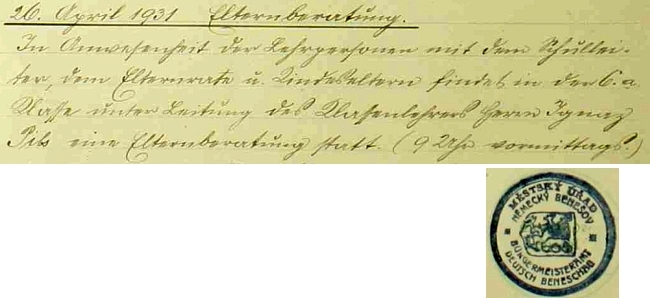 26. April 1931 Elternberatung.
In Anwesenheit der Lehrpersonen mit dem Schullei-
ter, dem Elternrate u. Kindeseltern findet in der 6. a
Klasse unter Leitung des Klassenlehrers Herrn Ignaz
Pils eine Elternberatung statt. (9 Uhr vormittags.)
MĚSTSKÝ ÚŘAD
NĚMECKÝ BENEŠOV
BÜRGERMEISTERAMT
DEUTSCH BENESCHAU